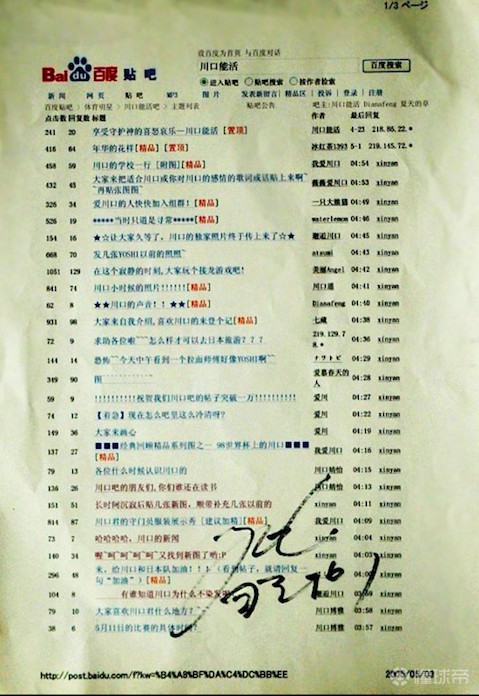 1/3 ページ
设百度为首页 与百度对话
Bai du 百度 贴吧
川口能活
百度搜索
进入贴吧 贴吧搜索 按作者检索
新闻 网页 贴吧 MP3 图片 发表新留言 | 精品区 | 投诉 | 登录 | 注册
百度贴吧 > 体育明星 > 川口能活吧 > 主题列表 贴吧公告 吧主:川口能活 Dianafeng 夏天的草
点击数 回复数 标题 作者 最后回复
241 20 享受守护神的喜怒哀乐—川口能活 [置顶] 川口能活 4-23 218.86.22.*
416 64 年华的花样[精品] [置顶] 冰红茶1393 5-1 219.145.72.*
458 59 川口的学校一行 [附图][精品] 我爱川口 04:54 xinyan
432 43 大家来把适合川口或你对川口的感情的歌词或话贴上来啊~
~再贴张图图~ 薇薇爱川口 04:53 xinyan
326 34 爱川口的人快快加入组群![精品] 一只大熊猫 04:49 xinyan
526 19 *****当时只道是寻常*****[精品] waterlemon 04:46 xinyan
154 16 ★☆让大家久等了，川口的独家照片终于传上来了☆★ 邂逅川口 04:45 xinyan
668 70 发几张YOSHI以前的照照~ atsumi 04:43 xinyan
1051 129 在这个寂静的时刻,大家玩个接龙游戏吧! 美丽Angel 04:42 xinyan
841 74 川口小时候的照片!!!!!![精品] 川口遥 04:41 xinyan
62 8 ★★川口的声音！！★★[精品] Dianafeng 04:40 xinyan
931 98 大家来自我介绍,喜欢川口的来登个记[精品] 七藏 04:38 xinyan
72 9 求助各位啦~~怎么样才可以去日本旅游？？？ 219.129.7
8.* 04:36 xinyan
144 14 恐怖~~今天中午看到一个拉面师傅好像YOSHI啊~~ 04:29 xinyan
349 90 图 爱慕春天的
人 04:28 xinyan
59 9 !!!!!!!!!!!祝贺我们川口吧的帖子突破一万!!!!!!!!!! 爱川 04:27 xinyan
74 12 【着急】现在怎么吧里这么冷清呀? 爱川 04:22 xinyan
149 36 大家来画心 爱川 04:19 xinyan
137 27 ■■■经典回顾精品系列图之一 98世界杯上的川口■■■
[精品] 我爱川口 04:16 xinyan
79 13 各位什么时候认识川口的 川口婧怡 04:15 xinyan
136 26 川口吧的朋友们,你们谁还在读书 川口婧怡 04:13 xinyan
151 51 长时间沉寂后贴几张新图，顺带补充几张以前的 xinyan 04:11 xinyan
814 87 川口君的守门员服装展示秀 [建议加精][精品] 我爱川口 04:09 xinyan
73 7 哈哈哈哈，川口的新闻 xinyan 04:04 xinyan
140 34 喔~呵~呵~呵~呵~又找到新图了哟:P xinyan 04:03 xinyan
296 48 来，给川口和日本队加油！！（看到帖子，就请回复一
句“加油”）[精品] 04:00 xinyan
104 8 有谁知道川口为什么不染发呢 邂逅川口 03:59 xinyan
79 10 大家喜欢川口君什么地方? 川口博雅 03:58 xinyan
38 6 5月11日的比赛的具体时间? 川口博雅 03:57 xinyan
http://post.baidu.com/f?kw=%B4%A8%BF%DA%C4%DC%BB%EE
2005/05/03
懂球帝